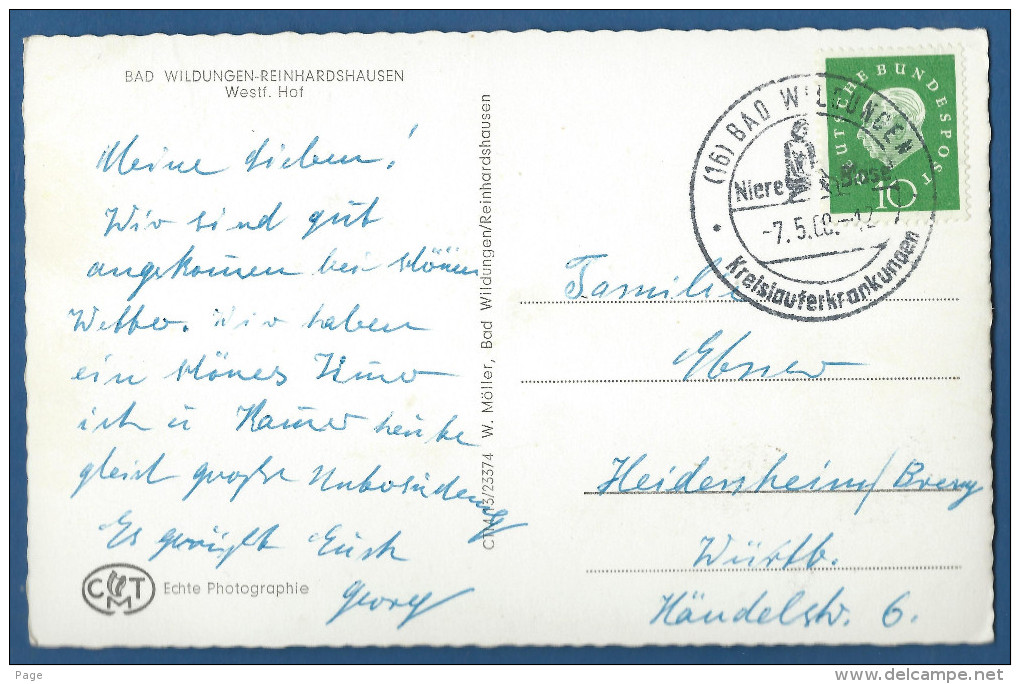 BAD WILDUNGEN-REINHARDSHAUSEN
Westf. Hof
Meine Lieben!
Wir sind gut
angekomen bei schönen
Wetter. Wir haben
ein schönes Zimer
ich u Kamer heute
gleich große
Es grüßt Euch
Georg
CMT
Echte Photographie
W. Möller, Bad Wildungen/Reinhardshausen
DEUTSCHE BUNDESPOST
10
(16) BAD WILDUNGEN
Niere Blase
-7.5.60.-12
Kreislauferkrankungen
Familie
Ebner
Heidensheim/Brenz
Württb.
Händelstr. 6.
Page
delcampe.net